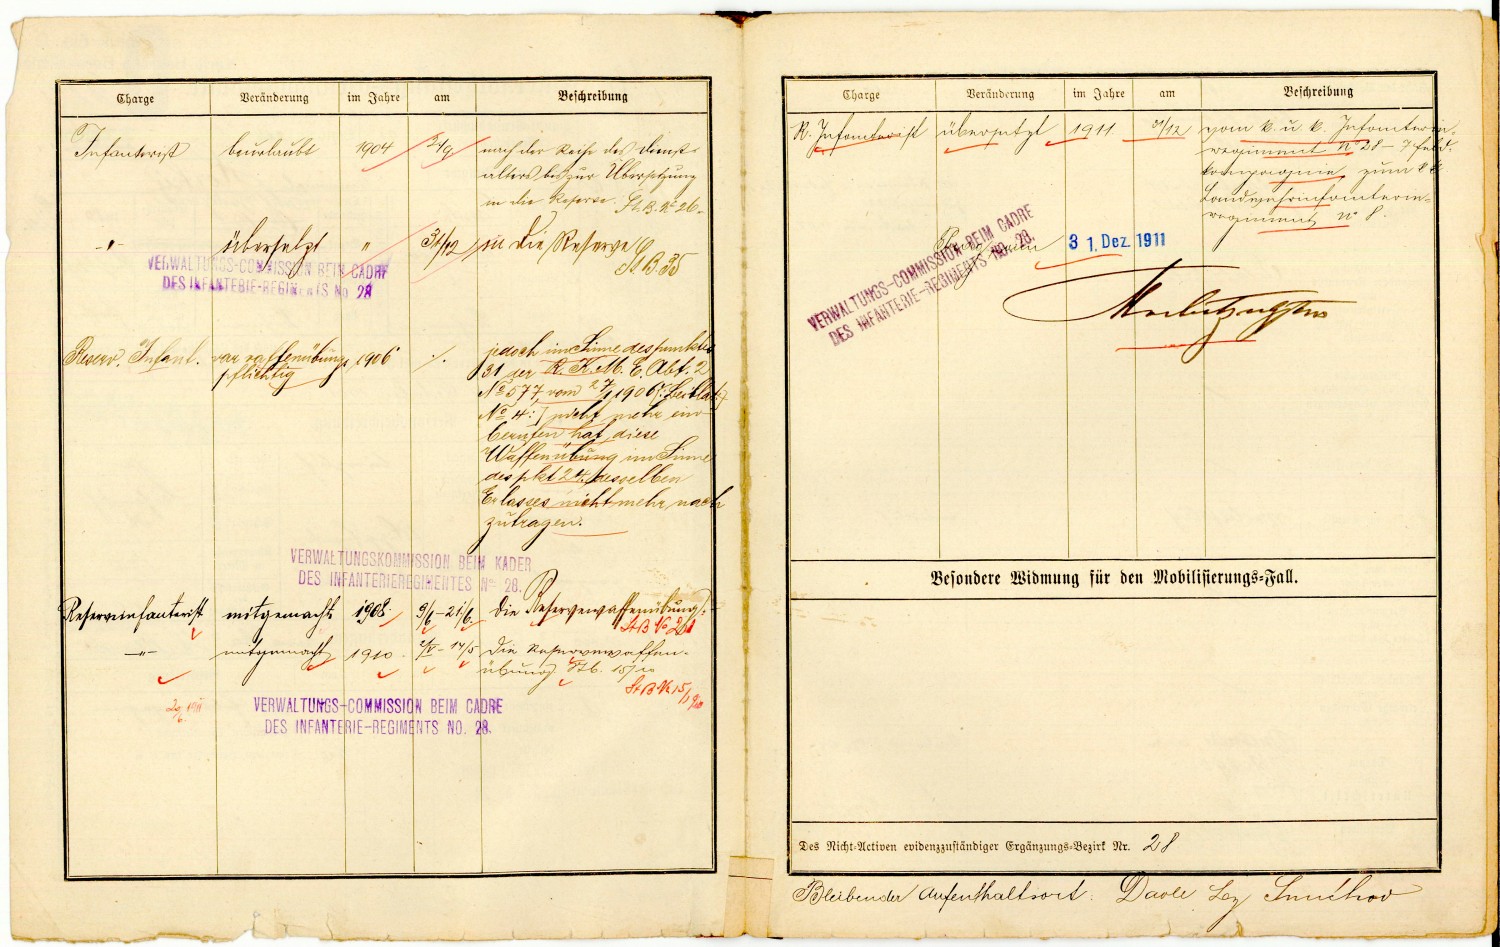 Charge Veränderung im Jahre am Beschreibung
Infanterist beurlaubt 1904 /9 nach der Reihe des Dienst-
alters bis zur Übersetzung
in die Reserve. St. B. No 26.
-"- übersetzt " 31/12 in die Reserve
St B. 35
VERWALTUNGS-COMMISSION BEIM CADRE
DES INFANTERIE-REGIMENTS No 28
Reserv. Infant. war waffenübungs 1906 ./. jedoch im Sinne des punktes
pflichtig 31 der R. K. M. E. Abt. 2
No 577 vom 1906 [: Beiblatt
No 4 :] nicht mehr ein-
berufen hat diese
Waffenübung im Sinne
des pkt 24 desselben
Erlasses nicht mehr nach
zutragen.
VERWALTUNGSKOMMISSION BEIM KADER
DES INFANTERIEREGIMENTES No 28.
Reserveinfanterist mitgemacht 1908 9/6-21/6 die Reservewaffenübung
St B No
-"- mitgemacht 1910 2/V-14/5 die Reservewaffen-
übung Stb. 15/10
St B No 15/1910
VERWALTUNGS-COMMISSION BEIM CADRE
DES INFANTERIE-REGIMENTS NO. 28.
Charge Veränderung im Jahre am Beschreibung
R. Infanterist übersetzt 1911 31/12 vom k. u. k. Infanterie-
regiment No 28 - 7 Feld-
kompagnie, zum k k
Landwehrinfanterie-
regiment No 8.
31. Dez. 1911
VERWALTUNGS-COMMISSION BEIM CADRE
DES INFANTERIE-REGIMENTS NO. 28.
Besondere Widmung für den Mobilisierungs-Fall.
Des Nicht-Activen evidenzzuständiger Ergänzungs-Bezirk Nr. 28
Bleibender Aufenthaltsort: Davle Bez Smíchov